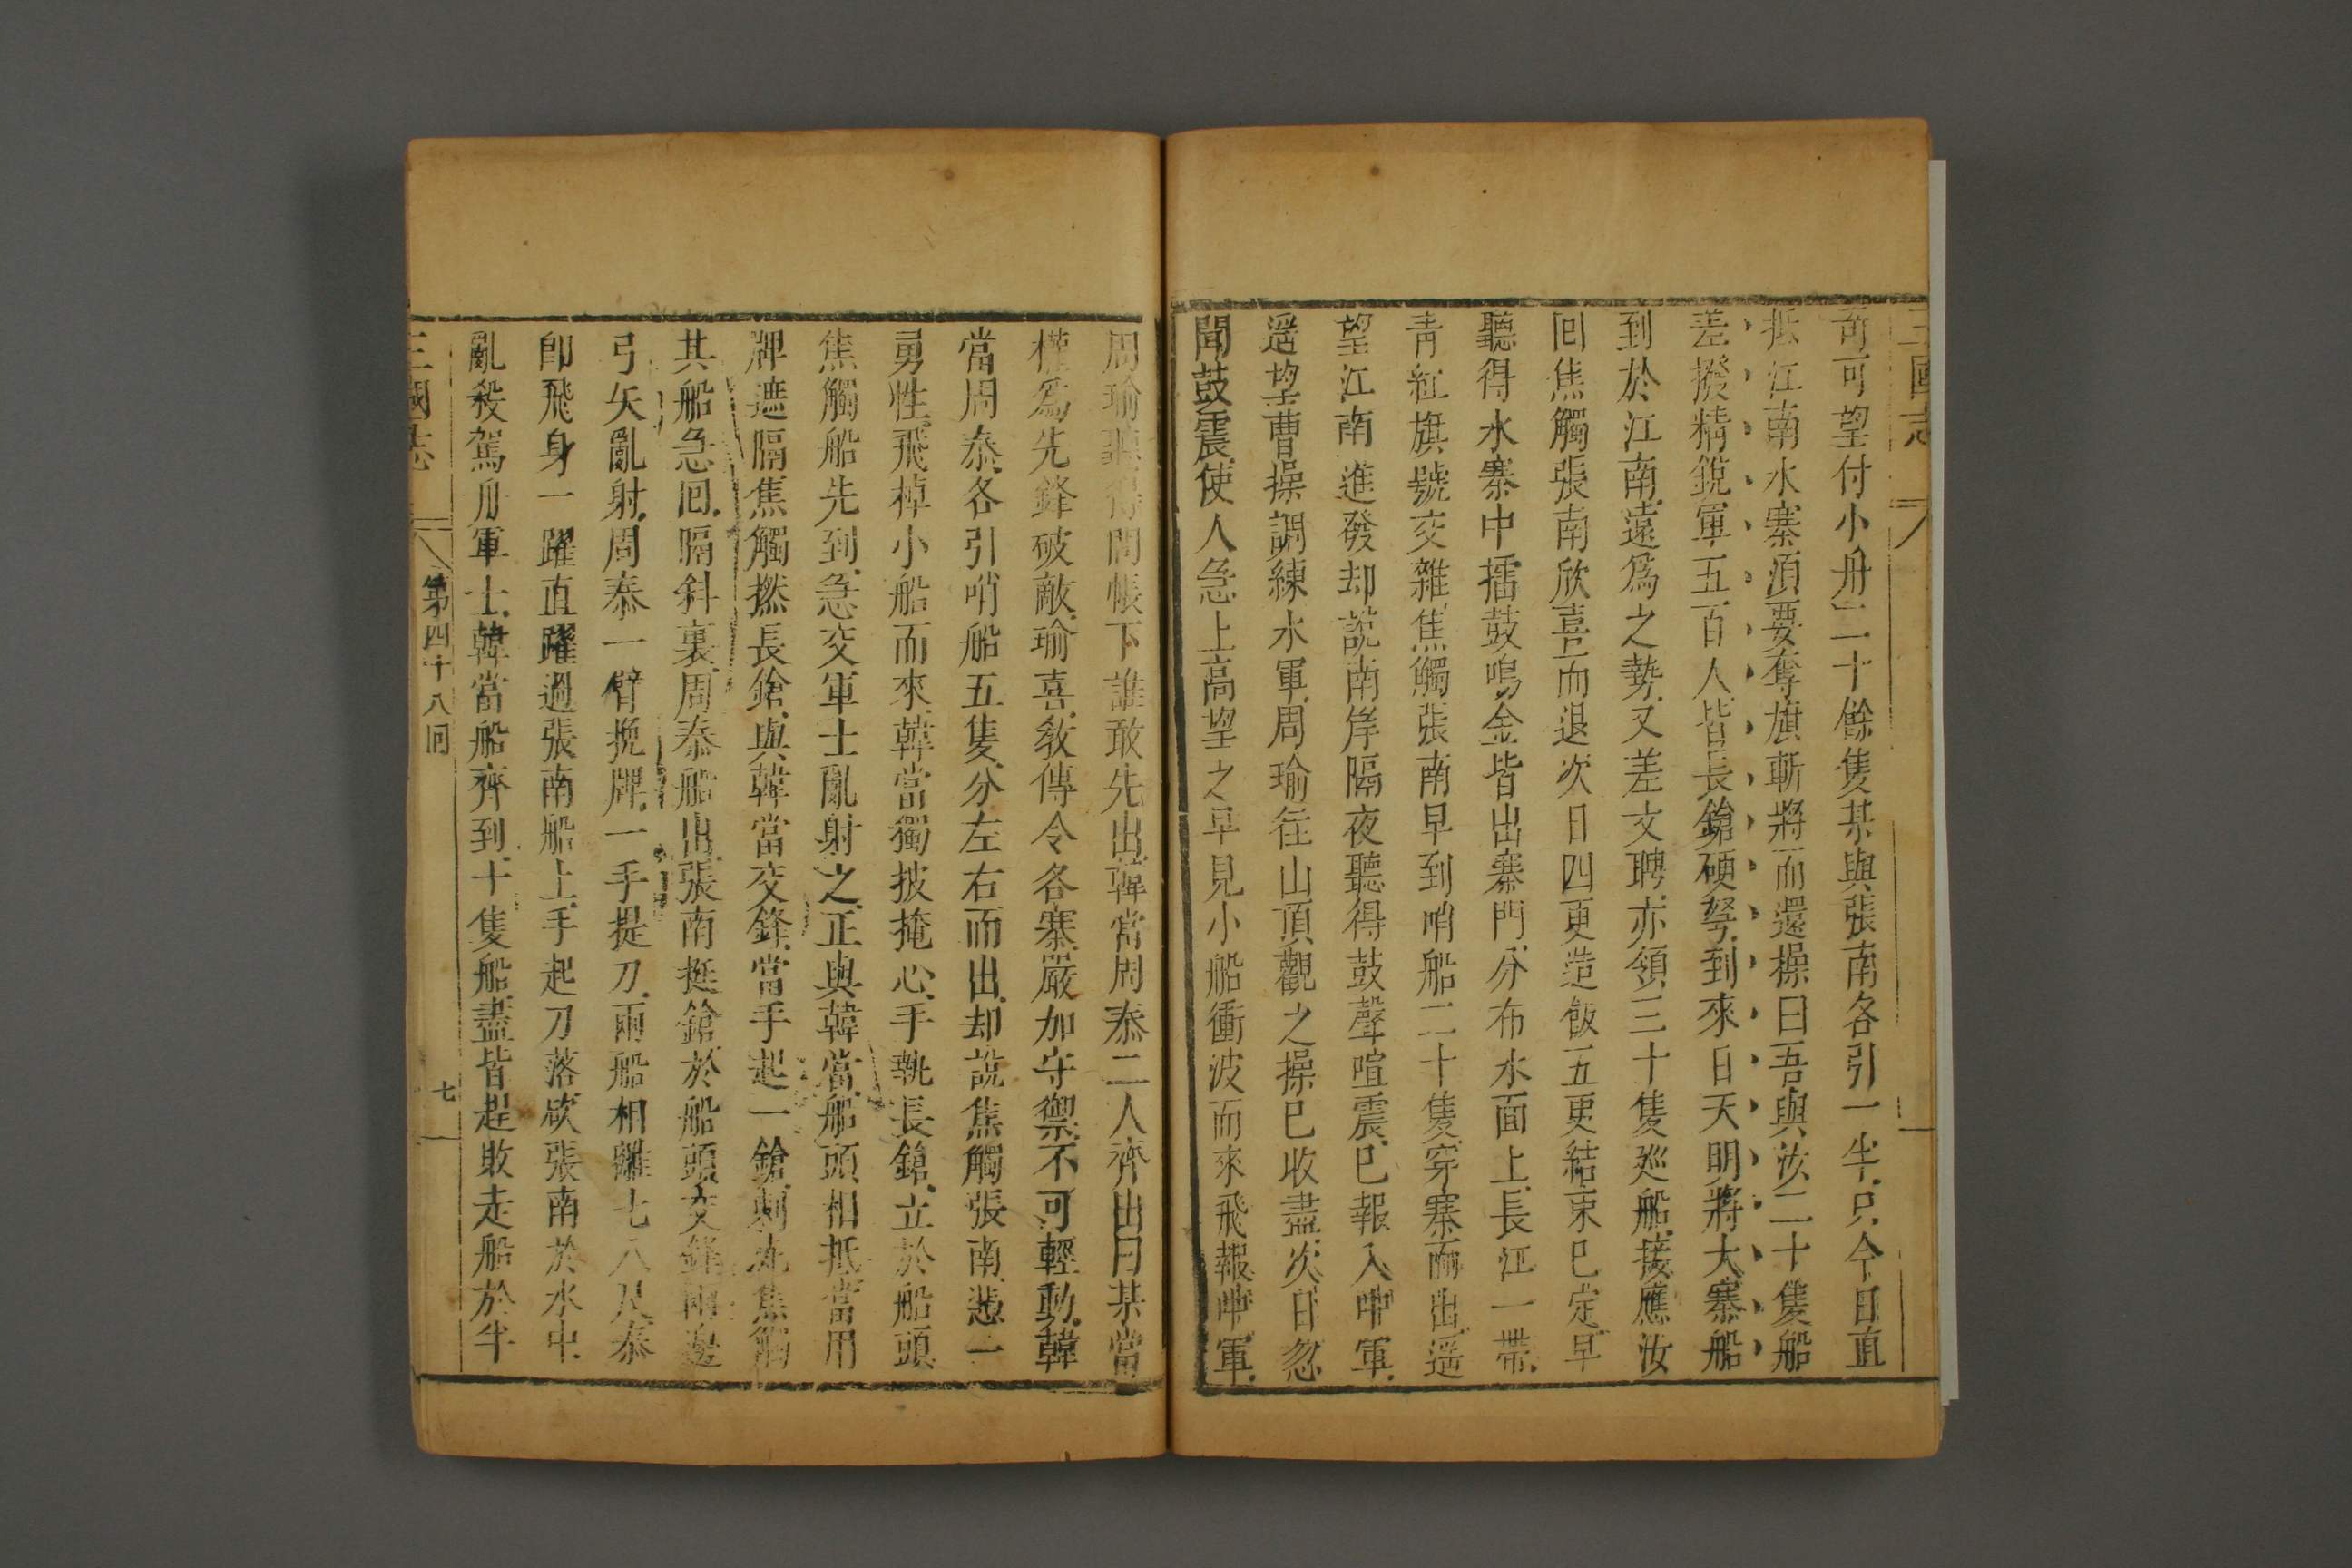 三國志
奇可望付小舟二十餘隻某與張南各引一半只今日直
抵江南水寨須要奪旗斬將而還操曰吾與汝二十隻船
差撥精銳軍五百人皆長鎗硬弩到來日天明將大寨船
到於江南遠為之勢又差文聘亦領三十隻巡船接應汝
回焦觸張南欣喜而退次日四更造飯五更結束已定早
聽得水寨中擂鼓鳴金皆出寨門分布水面上長江一帶
青紅旗號交雜焦觸張南早到哨船二十隻穿寨而出遥
望江南進發却說南岸隔夜聽得鼓聲喧震已報入中軍
遥望曹操調練水軍周瑜徃山頂觀之操已收盡次日忽
聞鼓震使人急上高望之早見小船衝波而來飛報中軍
周瑜聽得問帳下誰敢先出韓當周泰二人齊出曰某當
權為先鋒破敵瑜喜教傳令各寨嚴加守禦不可輕動韓
當周泰各引哨船五隻分左右而出却說焦觸張南慿一
勇性飛棹小船而來韓當獨披掩心手執長鎗立於船頭
焦觸船先到急交軍士亂射之正與韓當船頭相抵當用
牌遮隔焦觸撚長鎗與韓當交鋒當手起一鎗刺死焦觸
其船急回隔斜裏周泰船出張南挺鎗於船頭交鋒兩邊
弓矢亂射周泰一臂挽牌一手提刀兩船相離七八尺泰
即飛身一躍直躍過張南船上手起刀落砍張南於水中
亂殺駕舟軍士韓當船齊到十隻船盡皆趕敗走船於半
三國志 第四十八回 七